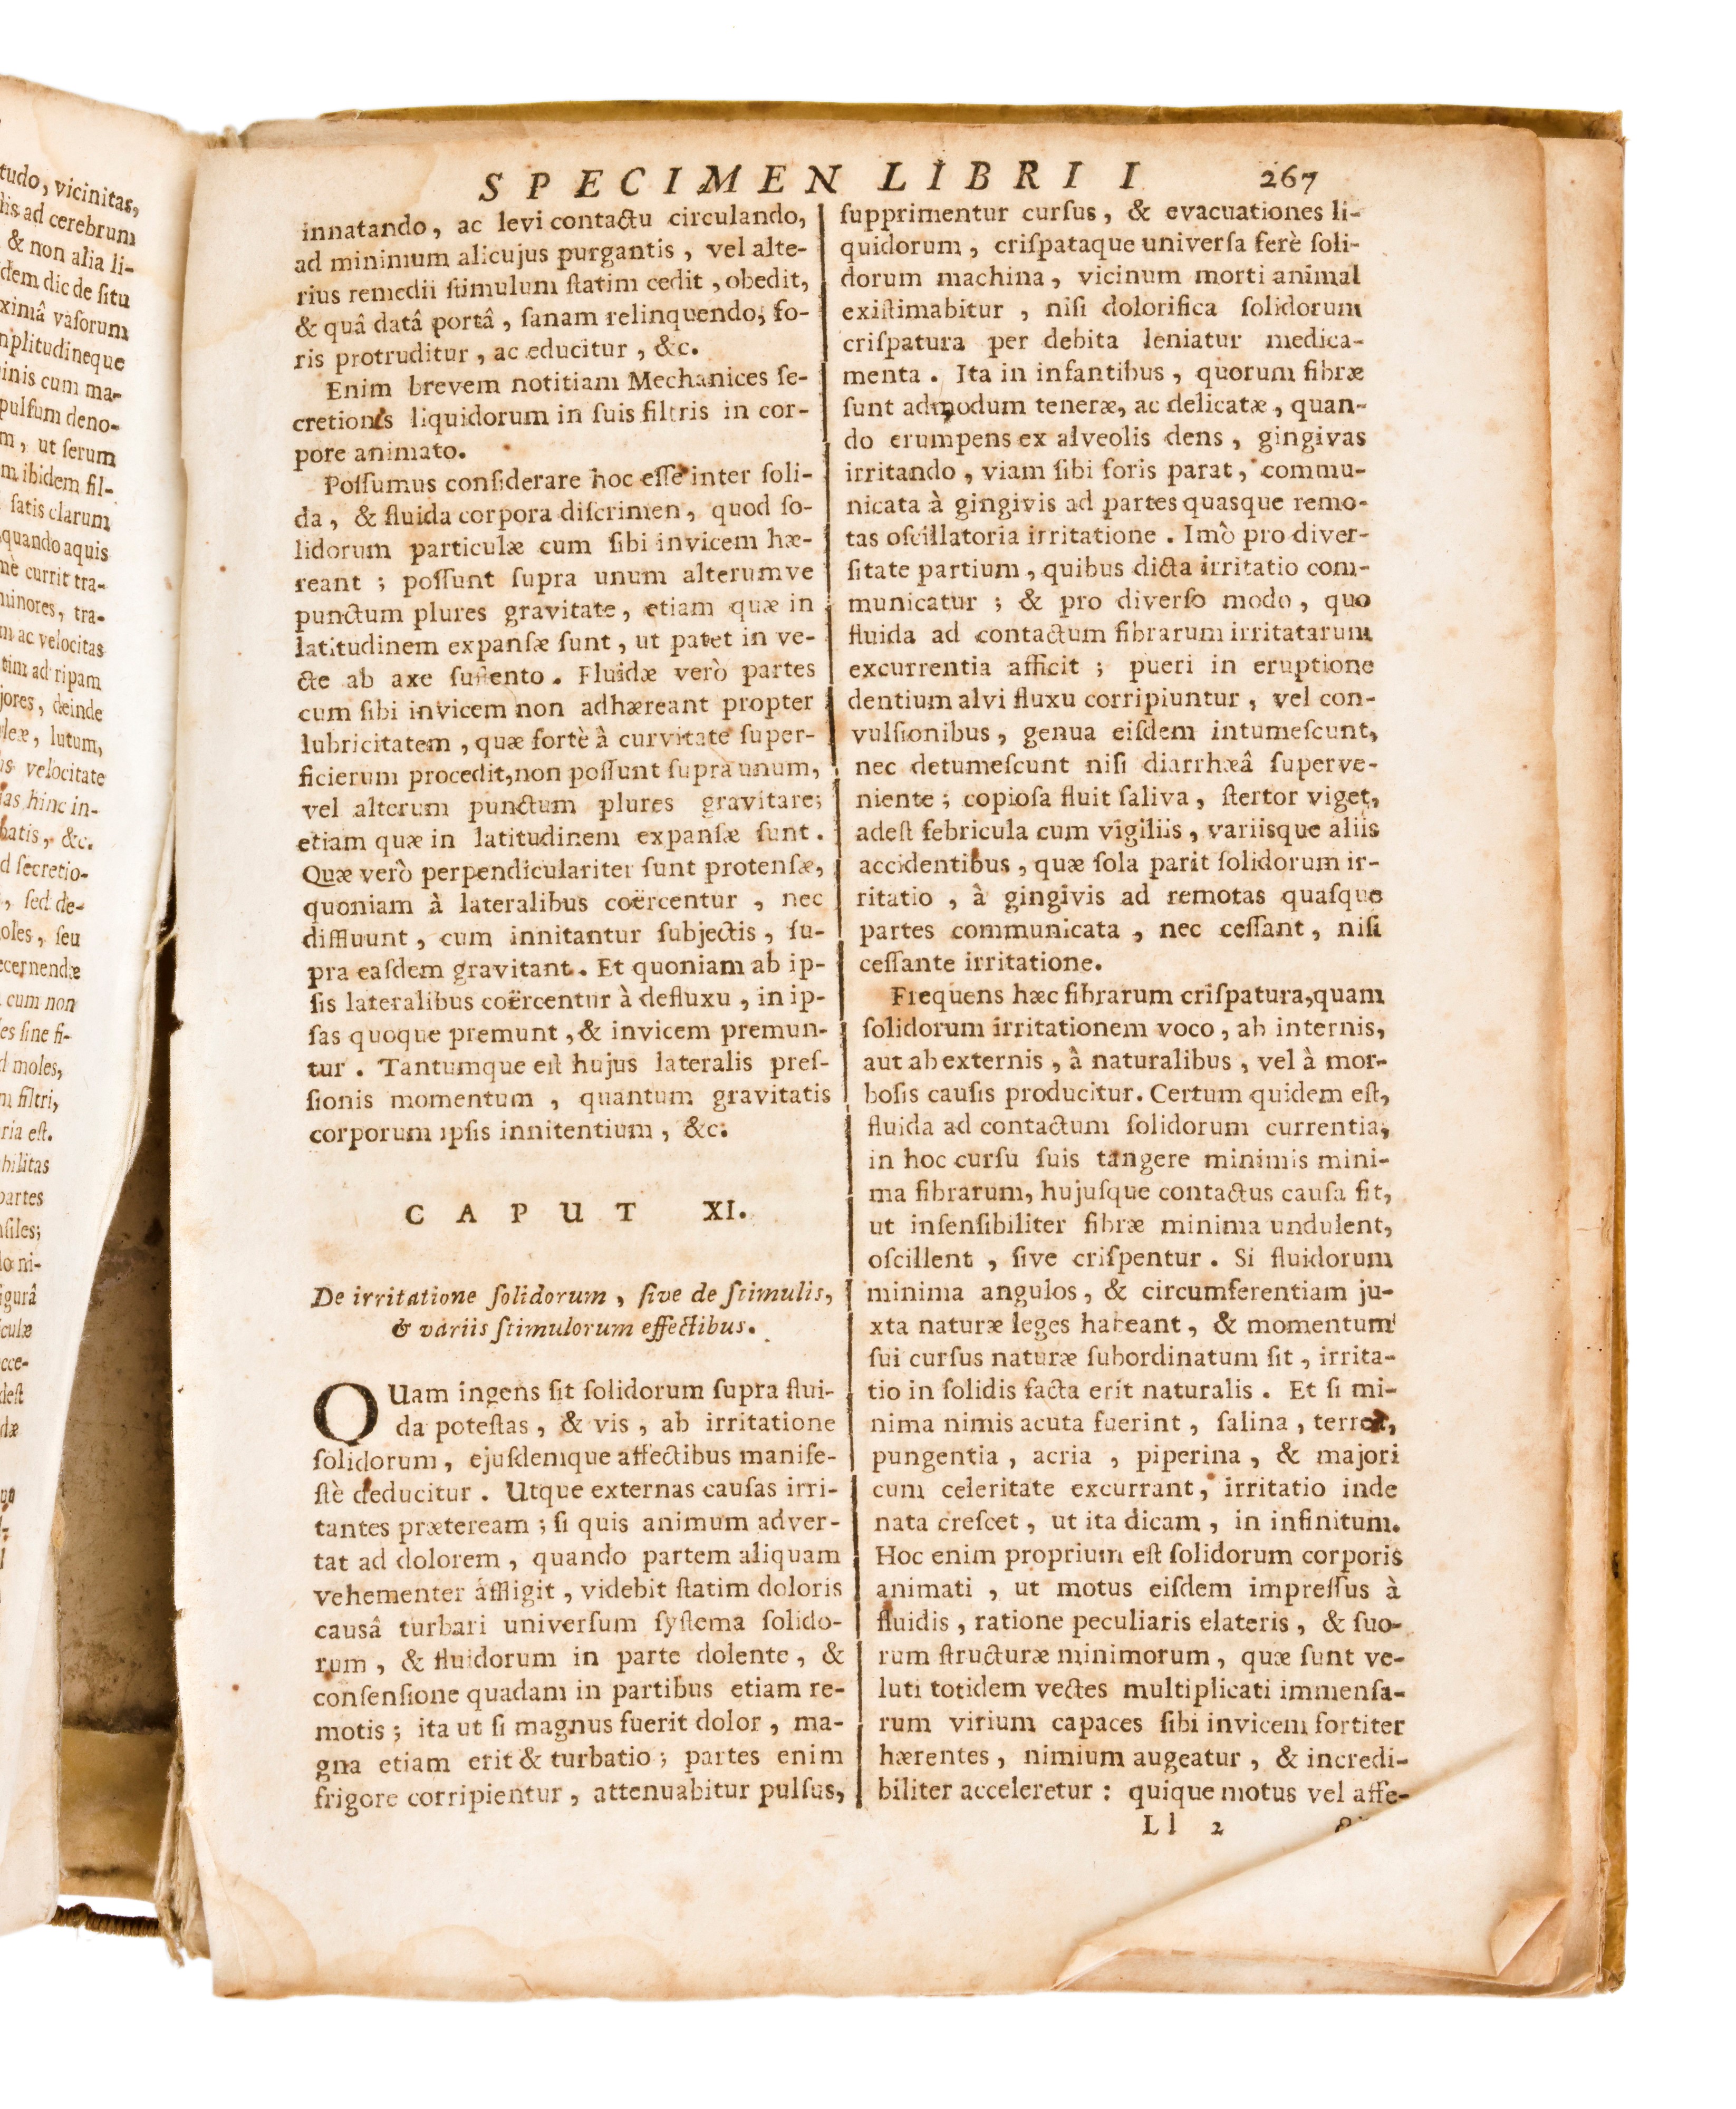 tudo, vicinitas,
lis ad cerebrum
& non alia li-
dem dic de ſitu
ximâ vaſorum
mplitudineque
inis cum ma-
pulſum deno-
m, ut ſerum
m ibidem fil-
ſatis clarum
quando aquis
me currit tra-
minores, tra-
m ac velocitas
tim ad ripam
jores, deinde
leæ, lutum,
is velocitate
las hinc in-
batis, &c.
d ſecretio-
, ſed de-
oles, ſeu
ecernendæ
cum non
es ſine fi-
d moles,
m filtri,
ria eſt.
bilitas
partes
ſiles;
do ni-
igurâ
culæ
cce-
deſt
dæ
SPECIMEN LIBRI I 267
innatando, ac levi contactu circulando,
ad minimum alicujus purgantis, vel alte-
rius remedii ſtimulum ſtatim cedit, obedit,
& quâ datâ portâ, ſanam relinquendo, fo-
ris protruditur, ac educitur, &c.
Enim brevem notitiam Mechanices ſe-
cretionis liquidorum in ſuis filtris in cor-
pore animato.
Poſſumus conſiderare hoc eſſe inter ſoli-
da, & fluida corpora diſcrimen, quod ſo-
lidorum particulæ cum ſibi invicem hæ-
reant; poſſunt ſupra unum alterumve
punctum plures gravitate, etiam quæ in
latitudinem expanſæ ſunt, ut patet in ve-
cte ab axe ſuffento. Fluidæ verò partes
cum ſibi invicem non adhæreant propter
lubricitatem, quæ fortè â curvitate ſuper-
ficierum procedit, non poſſunt ſupra unum,
vel alterum punctum plures gravitare;
etiam quæ in latitudinem expanſæ ſunt.
Quæ verò perpendiculariter ſunt protenſæ,
quoniam à lateralibus coërcentur, nec
diffluunt, cum innitantur ſubjectis, ſu-
pra eaſdem gravitant. Et quoniam ab ip-
ſis lateralibus coërcentur à defluxu, in ip-
ſas quoque premunt, & invicem premun-
tur. Tantumque eſt hujus lateralis preſ-
ſionis momentum, quantum gravitatis
corporum ipſis innitentium, &c.
CAPUT XI.
De irritatione ſolidorum, ſive de ſtimulis,
& variis ſtimulorum effectibus.
QUam ingens ſit ſolidorum ſupra flui-
da poteſtas, & vis, ab irritatione
ſolidorum, ejuſdemque affectibus manife-
ſtè deducitur. Utque externas cauſas irri-
tantes præteream; ſi quis animum adver-
tat ad dolorem, quando partem aliquam
vehementer áffligit, videbit ſtatim doloris
cauſâ turbari univerſum ſyſtema ſolido-
rum, & fluidorum in parte dolente, &
conſenſione quadam in partibus etiam re-
motis; ita ut ſi magnus fuerit dolor, ma-
gna etiam erit & turbatio; partes enim
frigore corripientur, attenuabitur pulſus,
ſupprimentur curſus, & evacuationes li-
quidorum, criſpataque univerſa ferè ſoli-
dorum machina, vicinum morti animal
exiſtimabitur, niſi dolorifica ſolidorum
criſpatura per debita leniatur medica-
menta. Ita in infantibus, quorum fibræ
ſunt admodum teneræ, ac delicatæ, quan-
do erumpens ex alveolis dens, gingivas
irritando, viam ſibi foris parat, commu-
nicata à gingivis ad partes quasque remo-
tas oſcillatoria irritatione. Imò pro diver-
ſitate partium, quibus dicta irritatio com-
municatur; & pro diverſo modo, quo
fluida ad contactum fibrarum irritatarum
excurrentia afficit; pueri in eruptione
dentium alvi fluxu corripiuntur, vel con-
vulſionibus, genua eiſdem intumeſcunt,
nec detumeſcunt niſi diarrhæâ ſuperve-
niente; copioſa fluit ſaliva, ſtertor viget,
adeſt febricula cum vigiliis, variisque aliis
accidentibus, quæ ſola parit ſolidorum ir-
ritatio, à gingivis ad remotas quaſque
partes communicata, nec ceſſant, niſi
ceſſante irritatione.
Frequens hæc fibrarum criſpatura, quam
ſolidorum irritationem voco, ab internis,
aut ab externis, à naturalibus, vel à mor-
boſis cauſis producitur. Certum quidem eſt,
fluida ad contactum ſolidorum currentia,
in hoc curſu ſuis tangere minimis mini-
ma fibrarum, hujuſque contactus cauſa fit,
ut inſenſibiliter fibræ minima undulent,
oſcillent, ſive criſpentur. Si fluidorum
minima angulos, & circumferentiam ju-
xta naturæ leges habeant, & momentum
ſui curſus naturæ ſubordinatum ſit, irrita-
tio in ſolidis facta erit naturalis. Et ſi mi-
nima nimis acuta fuerint, ſalina, terrea,
pungentia, acria, piperina, & majori
cum celeritate excurrant, irritatio inde
nata creſcet, ut ita dicam, in infinitum.
Hoc enim proprium eſt ſolidorum corporis
animati, ut motus eiſdem impreſſus à
fluidis, ratione peculiaris elateris, & ſuo-
rum ſtructuræ minimorum, quæ ſunt ve-
luti totidem vectes multiplicati immenſa-
rum virium capaces ſibi invicem fortiter
hærentes, nimium augeatur, & incredi-
biliter acceleretur: quique motus vel affe-
Ll 2